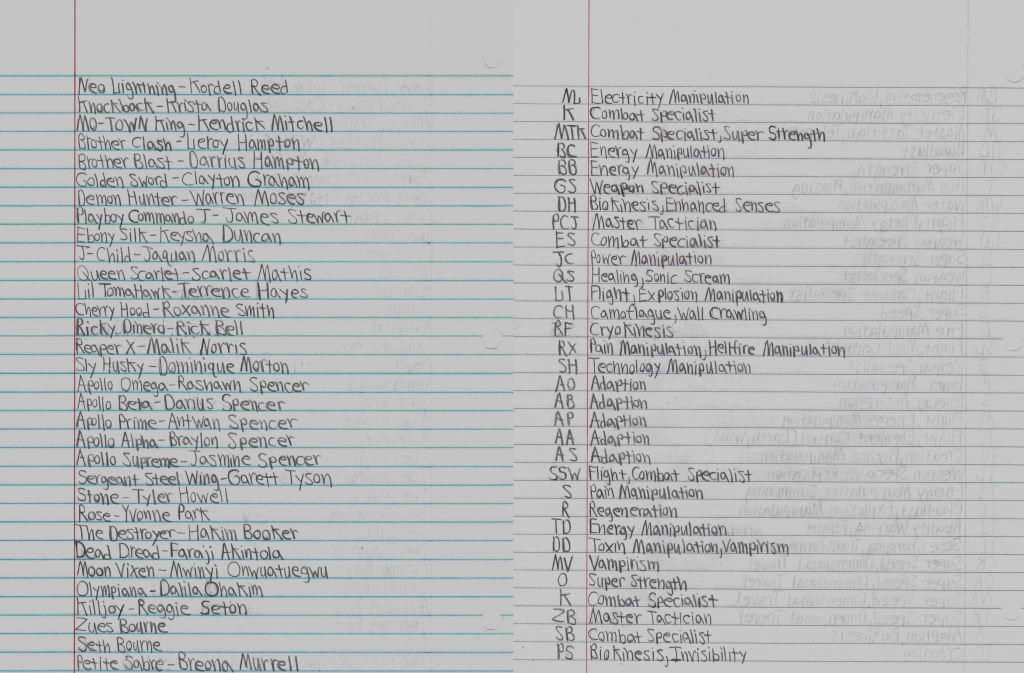 Neo Lightning-Kordell Reed
Knockback-Krista Douglas
MO-TOWN King-Kendrick Mitchell
Brother Clash-Leroy Hampton
Brother Blast-Darrius Hampton
Golden Sword-Clayton Graham
Demon Hunter-Warren Moses
Playboy Commando J-James Stewart
Ebony Silk-Keysha Duncan
J-Child-Jaquan Morris
Queen Scarlet-Scarlet Mathis
Lil TomaHawk-Terrence Hayes
Cherry Hood-Roxanne Smith
Ricky Dinero-Rick Bell
Reaper X-Malik Norris
Sly Husky-Dominique Morton
Apollo Omega-Rashawn Spencer
Apollo Beta-Darius Spencer
Apollo Prime-Antwan Spencer
Apollo Alpha-Braylon Spencer
Apollo Supreme-Jasmine Spencer
Sergeant Steel Wing-Garett Tyson
Stone-Tyler Howell
Rose-Yvonne Park
The Destroyer-Hakim Booker
Dead Dread-Faraji Akintola
Moon Vixen-Mwinyi Onwuatuegwu
Olympiana-Dalila Ohakim
Killjoy-Reggie Seton
Zues Bourne
Seth Bourne
Petite Sabre-Breona Murrell
NL Electricity Manipulation
K Combat Specialist
MTK Combat Specialist,Super Strength
BC Energy Manipulation
BB Energy Manipulation
GS Weapon Specialist
DH Biokinesis,Enhanced Senses
PCJ Master Tactician
ES Combat Specialist
JC Power Manipulation
QS Healing,Sonic Scream
LT Flight,Explosion Manipulation
CH Camoflague,Wall Crawling
RF Cryokinesis
RX Pain Manipulation,Hellfire Manipulation
SH Technology Manipulation
AO Adaption
AB Adaption
AP Adaption
AA Adaption
AS Adaption
SSW Flight,Combat Specialist
S Pain Manipulation
R Regeneration
TD Energy Manipulation
DD Toxin Manipulation,Vampirism
MV Vampirism
O Super Strength
K Combat Specialist
ZB Master Tactician
SB Combat Specialist
PS Biokinesis,Invisibility